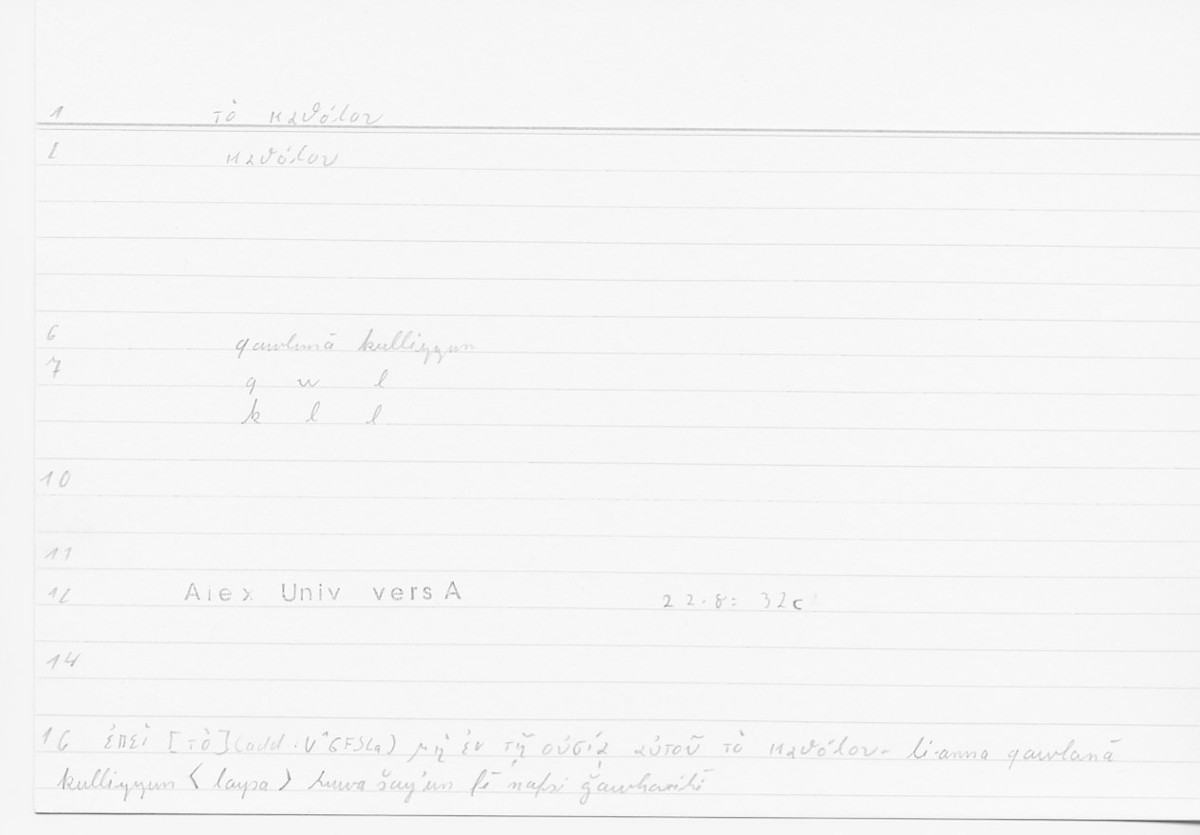 1 τὸ καθόλου
2 καθόλου
6 qawlunā kulliyyun
7 q w l
k l l
10
11
12 Alex Univ vers A 22.8: 32c
14
16 ἐπεὶ [τὸ] (add. ) μὴ ἐν τῇ οὐσίᾳ αὐτοῦ τὸ καθόλου - li-anna qawlanā
kulliyyun < laysa > huwa šay'un fī nafsi ǧawharihī